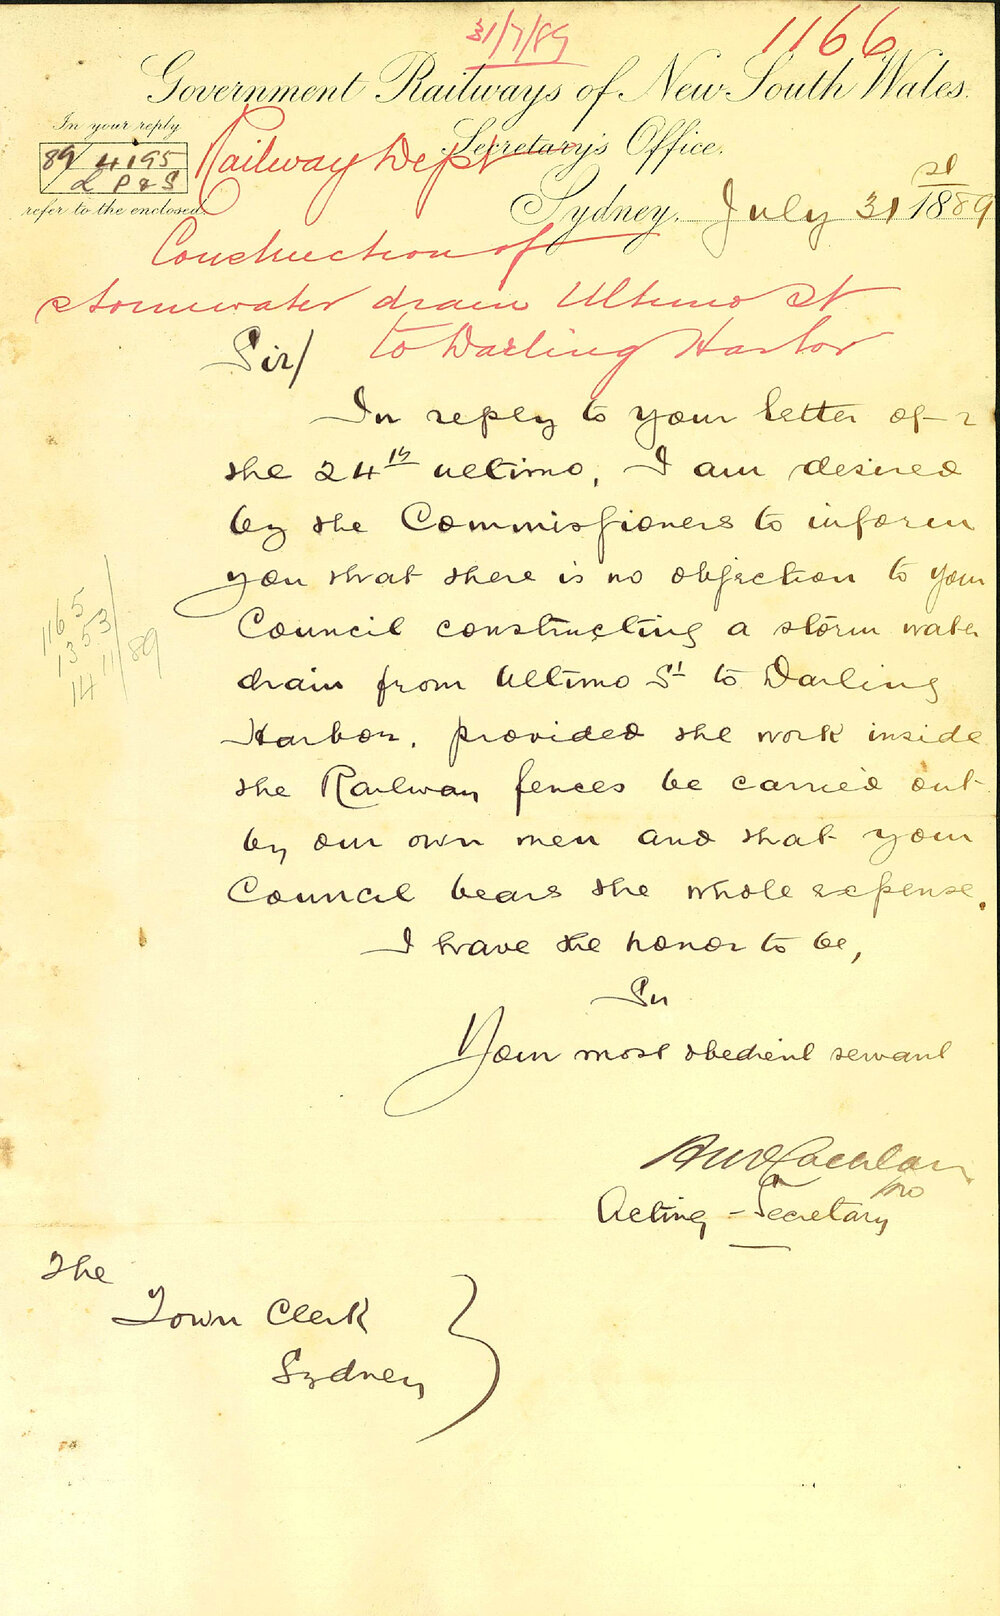 31/7/89
1166
Government Railways of New South Wales.
In your reply
89/4195
L P & S
refer to the enclosed.
Secretary's Office.
Railway Dept
Sydney, July 31st 1889
Construction of
stormwater drain Ultimo St
to Darling Harbor
Sir/
In reply to your letter of
the 24th ultimo, I am desired
by the Commissioners to inform
you that there is no objection to your
Council constructing a storm water
drain from Ultimo St to Darling
Harbor, provided the work inside
the Railway fences be carried out
by our own men and that your
Council bears the whole expense.
1165
1353
1411/89
I have the honor to be,
Sir
Your most obedient servant
pro
Acting-Secretary
The
Town Clerk
Sydney